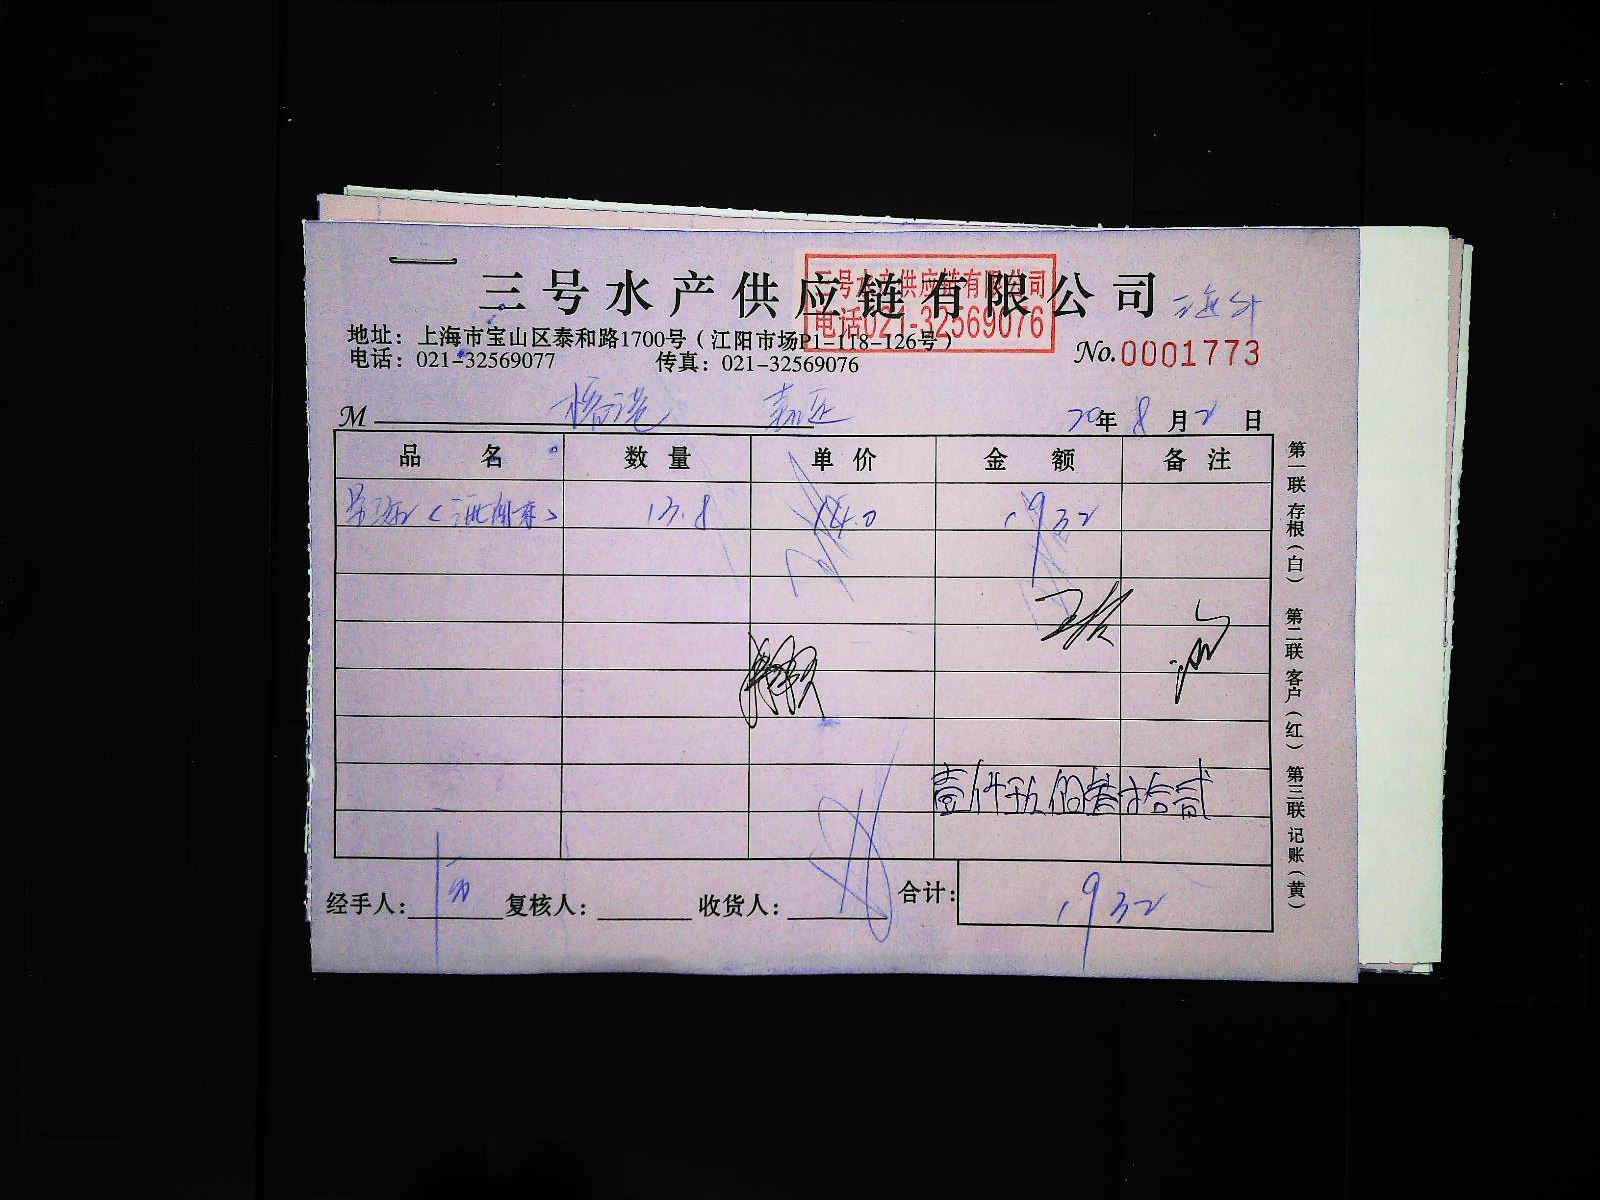 三号水产供应链有限公司
三号水产供应链有限公司
电话021-32569076
地址：上海市宝山区泰和路1700号（江阳市场P1-118-126号）
电话：021-32569077 传真：021-32569076
No.0001773
M
20年 8月2日
品名 数量 单价 金额 备注
13.8 14.0 1932
壹仟玖佰叁拾贰
经手人： 复核人： 收货人： 合计：1932
第一联 存根（白） 第二联 客户（红） 第三联 记账（黄）